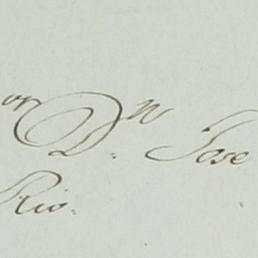 or Dn. Jose
Rio.